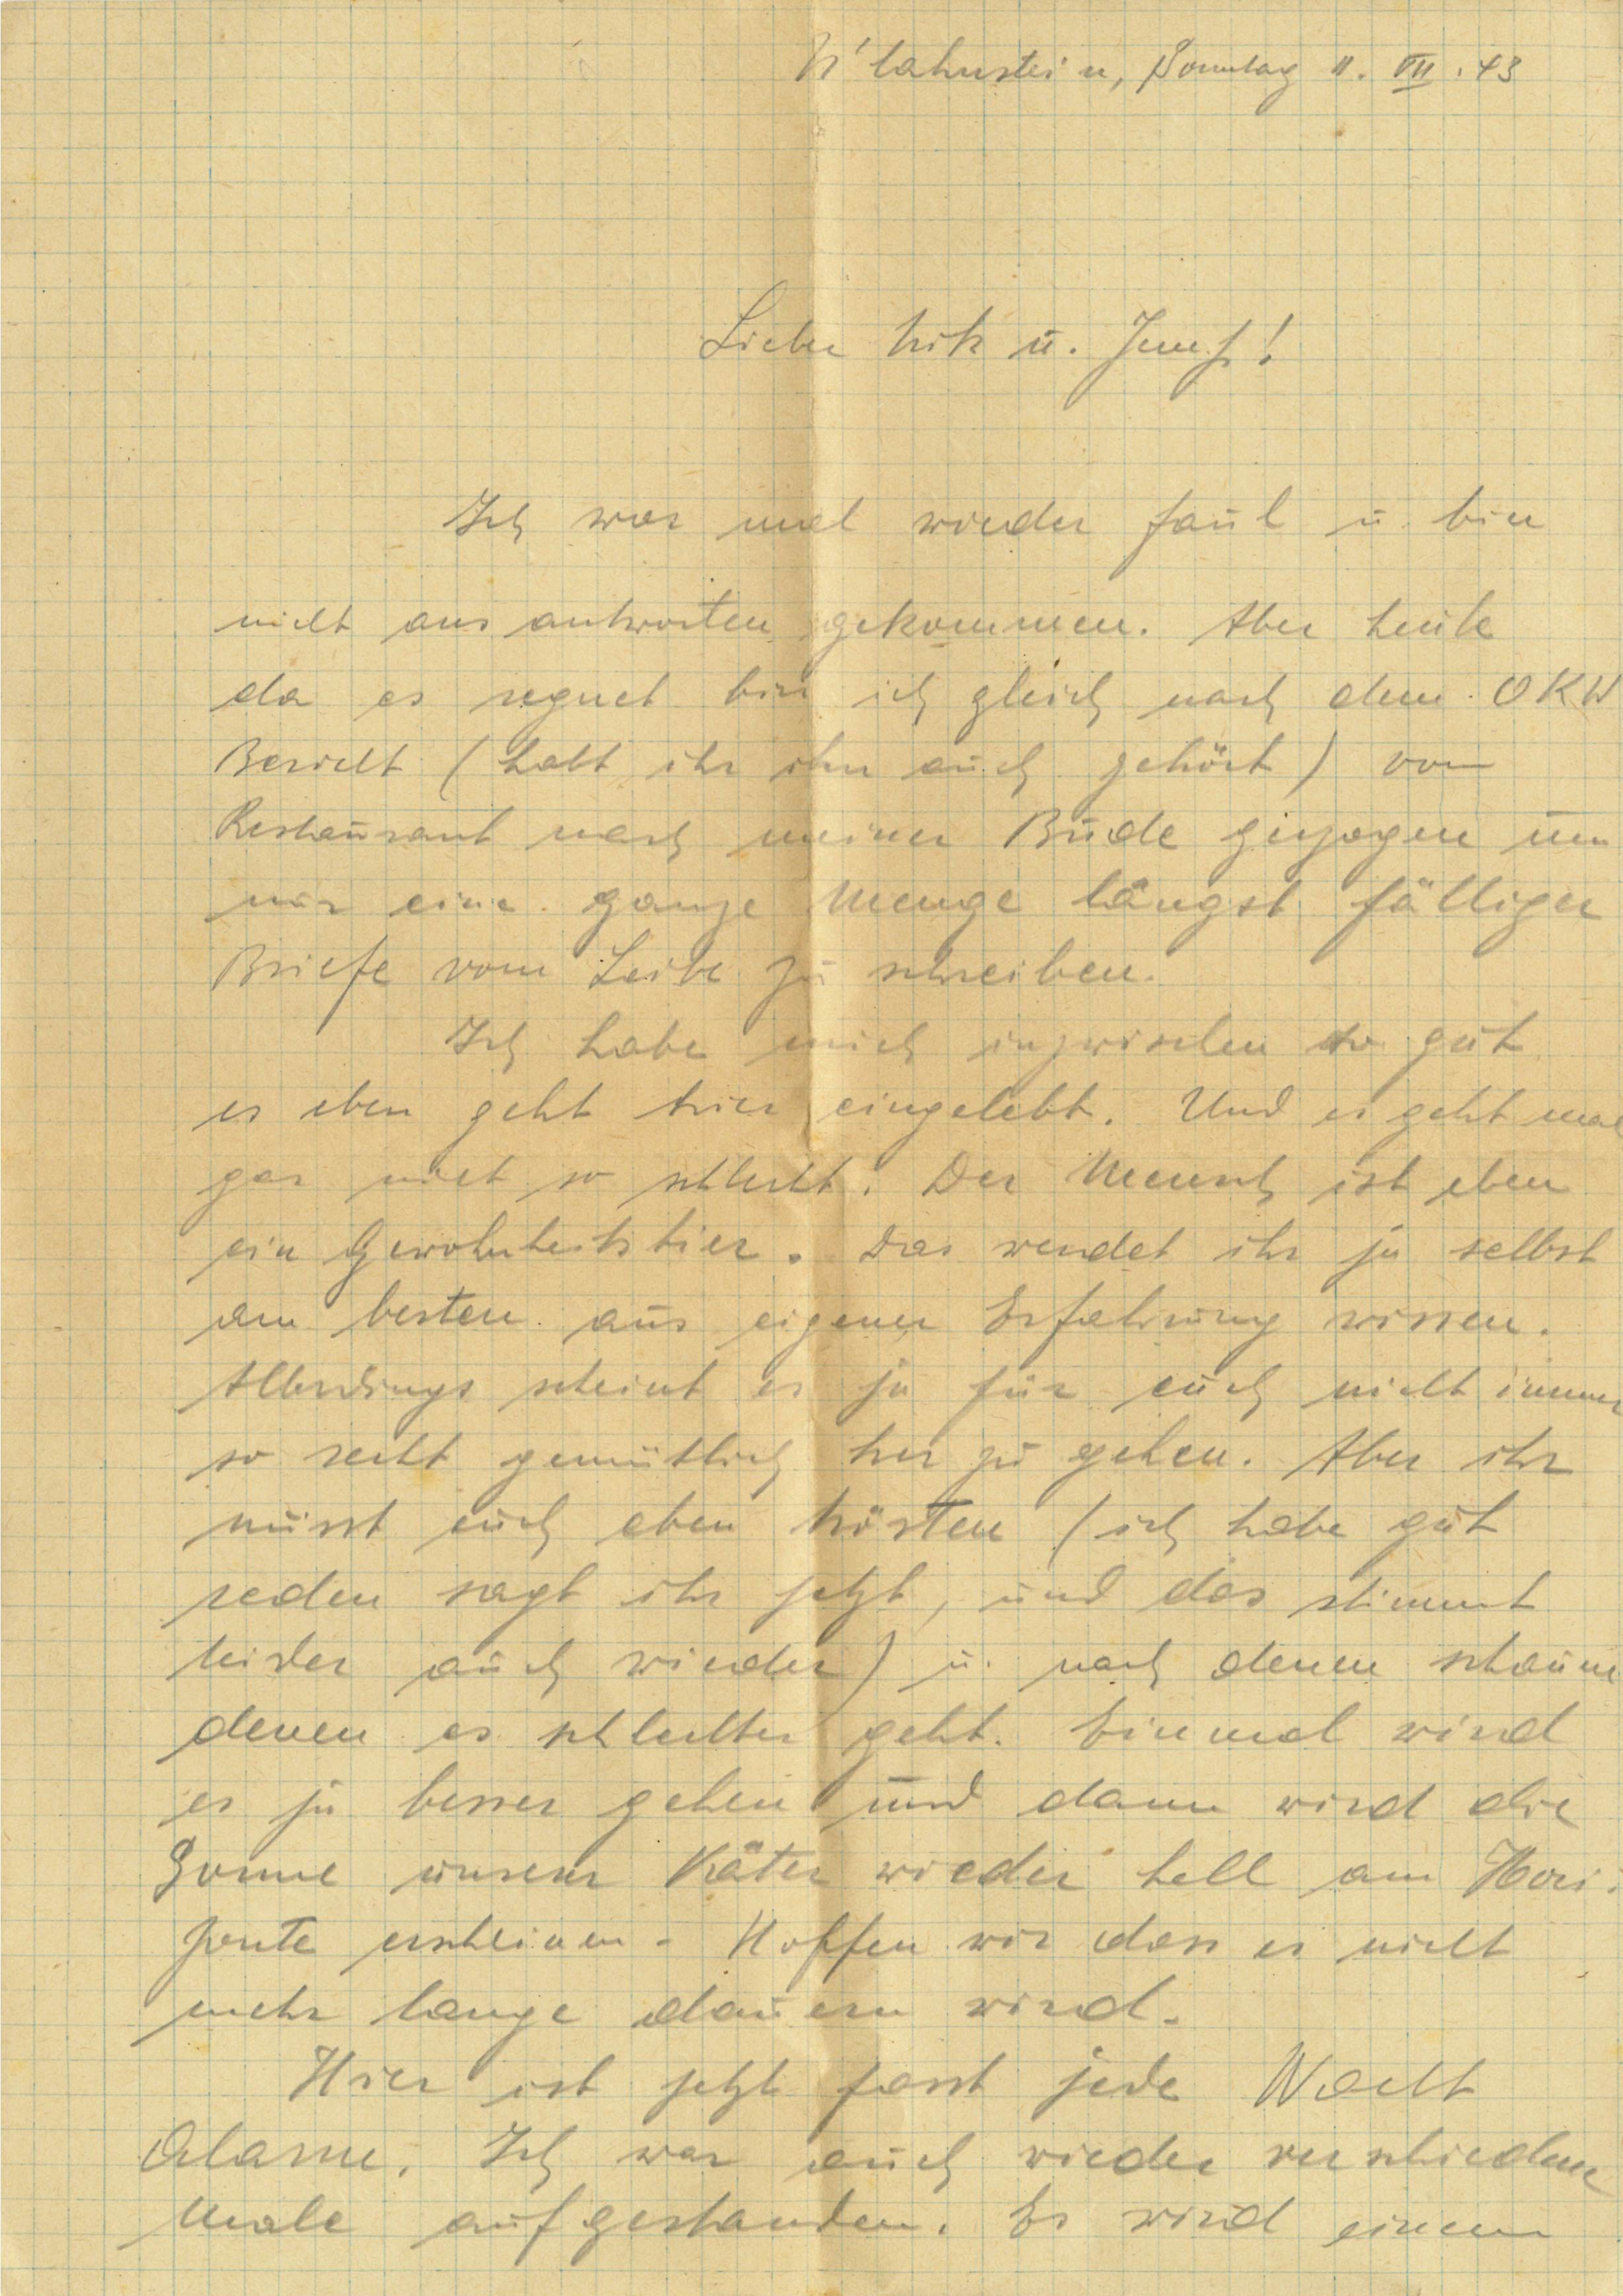 N'lahnstein, Sonntag 11. VII. 43
Liebe u. !
Ich war mal wieder faul u. bin
nicht ans antworten gekommen. Aber heute
da es regnet bin ich gleich nach dem OKW
Bericht (habt ihr ihn auch gehört) vom
Restaurant nach meiner Bude gezogen um
mir eine ganze Menge längst fälliger
Briefe vom Leibe zu schreiben.
Ich habe mich inzwischen so gut
es eben geht hier eingelebt. Und es geht mal
gar nicht so schlecht. Der Mensch ist eben
ein Gewohnheitstier. Das werdet ihr ja selbst
am besten aus eigener Erfahrung wissen.
Allerdings scheint es ja für euch nicht immer
so recht gemütlich her zu gehen. Aber ihr
müsst euch eben trösten (ich habe gut
reden sagt ihr jetzt, und das stimmt
leider auch wieder) u. nach denen schauen
denen es schlechter geht. Einmal wird
es ja besser gehen und dann wird die
Sonne unserer Väter wieder hell am Hori-
zonte erscheinen. Hoffen wir dass es nicht
mehr lange dauern wird.
Hier ist jetzt fasst jede Nacht
Alarm. Ich war auch wieder verschiedene
Male aufgestanden. Es wird einem